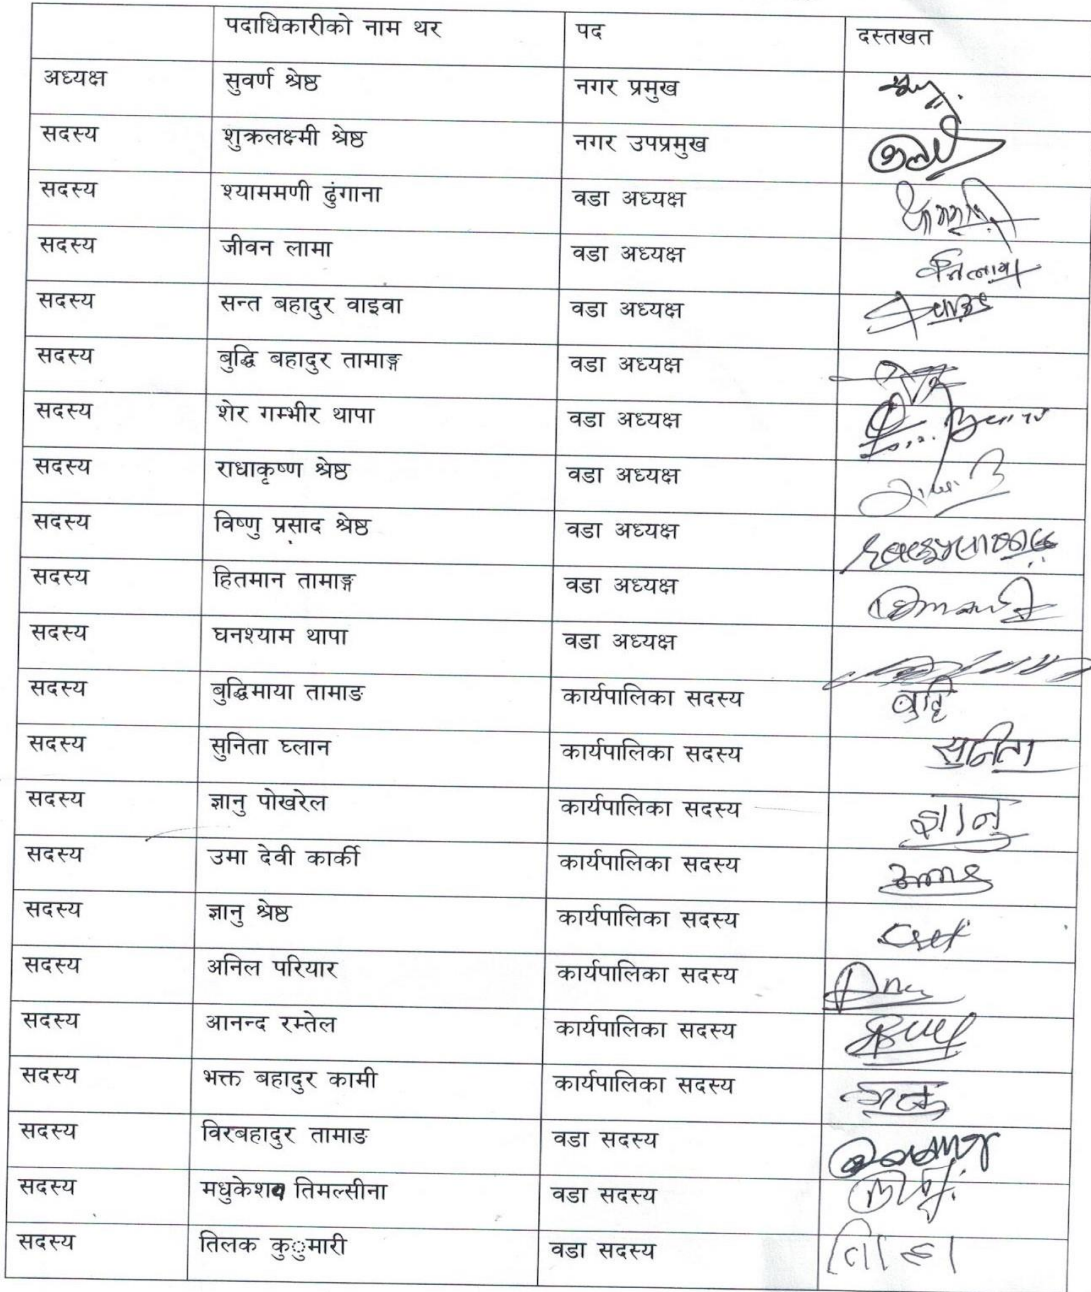 पदाधिकारीको नाम थर पद दस्तखत
अध्यक्ष सुवर्ण श्रेष्ठ नगर प्रमुख
सदस्य शुक्रलक्ष्मी श्रेष्ठ नगर उपप्रमुख
सदस्य श्याममणी ढुंगाना वडा अध्यक्ष
सदस्य जीवन लामा वडा अध्यक्ष
सदस्य सन्त बहादुर वाइवा वडा अध्यक्ष
सदस्य बुद्धि बहादुर तामाङ्ग वडा अध्यक्ष
सदस्य शेर गम्भीर थापा वडा अध्यक्ष
सदस्य राधाकृष्ण श्रेष्ठ वडा अध्यक्ष
सदस्य विष्णु प्रसाद श्रेष्ठ वडा अध्यक्ष
सदस्य हितमान तामाङ्ग वडा अध्यक्ष
सदस्य घनश्याम थापा वडा अध्यक्ष
सदस्य बुद्धिमाया तामाङ कार्यपालिका सदस्य बुद्धि
सदस्य सुनिता घ्लान कार्यपालिका सदस्य सुनिता
सदस्य ज्ञानु पोखरेल कार्यपालिका सदस्य ज्ञानु
सदस्य उमा देवी कार्की कार्यपालिका सदस्य
सदस्य ज्ञानु श्रेष्ठ कार्यपालिका सदस्य
सदस्य अनिल परियार कार्यपालिका सदस्य
सदस्य आनन्द रम्तेल कार्यपालिका सदस्य
सदस्य भक्त बहादुर कामी कार्यपालिका सदस्य
सदस्य विरबहादुर तामाङ वडा सदस्य
सदस्य मधुकेशव तिमल्सीना वडा सदस्य
सदस्य तिलक कुुमारी वडा सदस्य